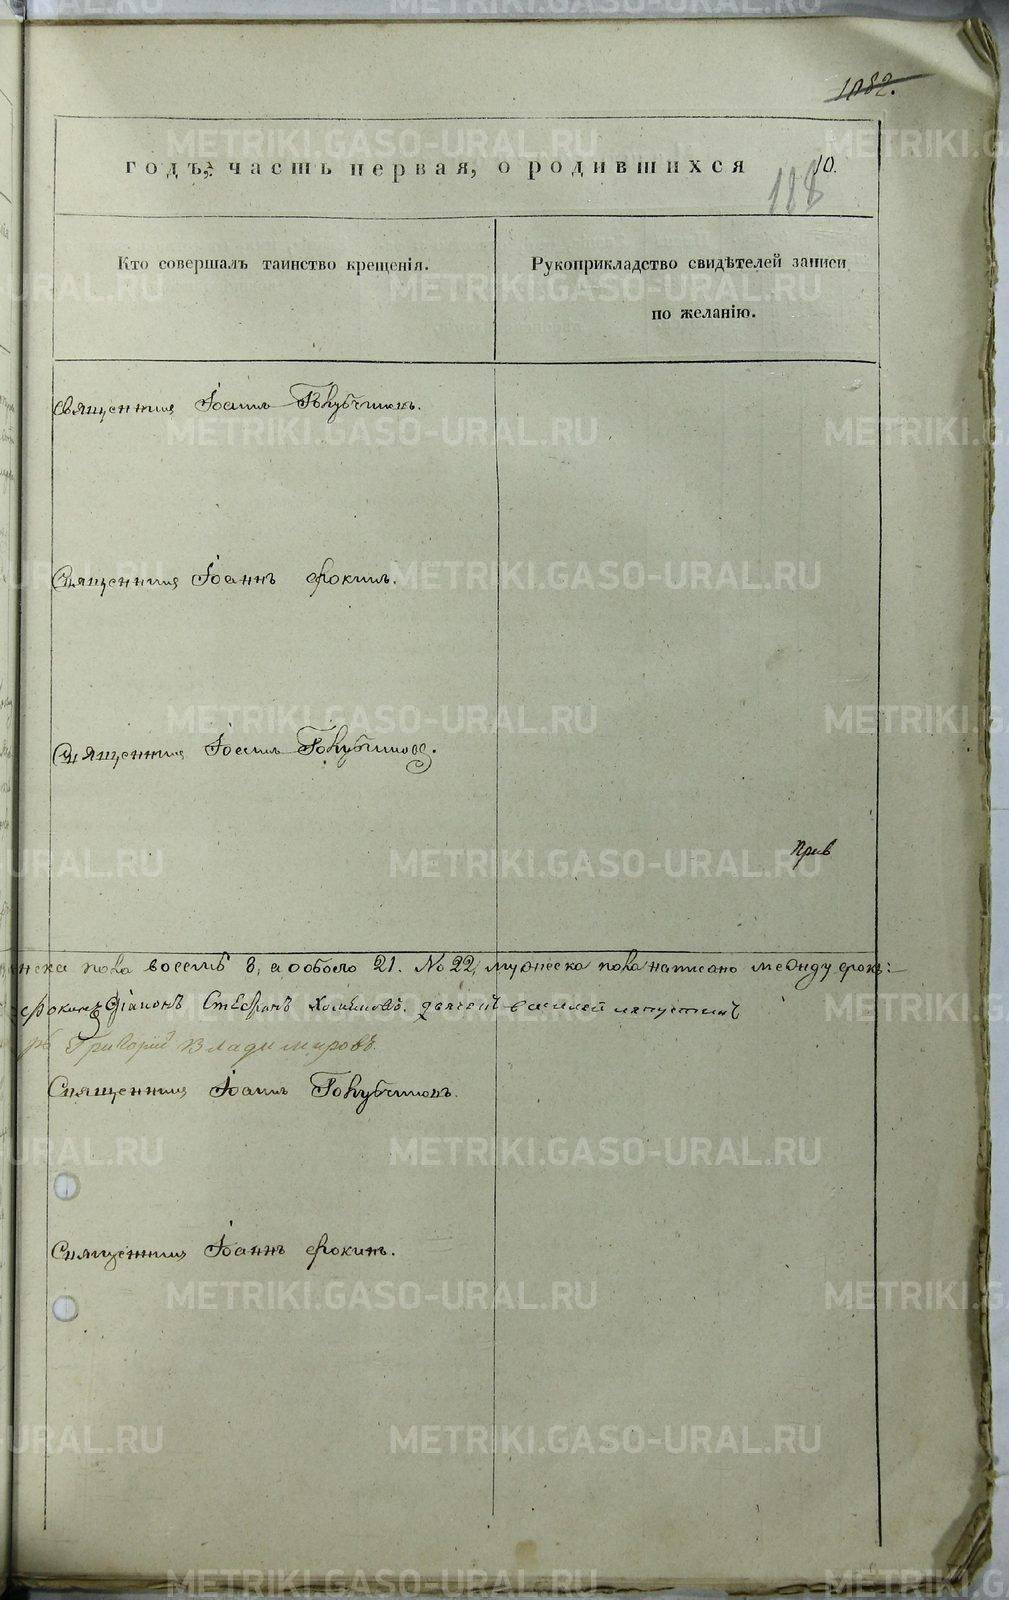 1082.
годъ, часть первая, о родившихся 10.
188
Кто совершалъ таинство крещенія.
Рукоприкладство свидѣтелей записи
по желанію.
Священникъ Іоаннъ Голубчиковъ.
Священникъ Іоаннъ Фокинъ.
Священникъ Іоаннъ Голубчиковъ.
пола восемь 8, а обоего 21. No 22, мужеска пола написано между строкъ:
Фокинъ Діаконъ Стефанъ
Григорій Владимировъ.
Священникъ Іоаннъ Голубчиковъ.
Священникъ Іоаннъ Фокинъ.
METRIKI.GASO-URAL.RU